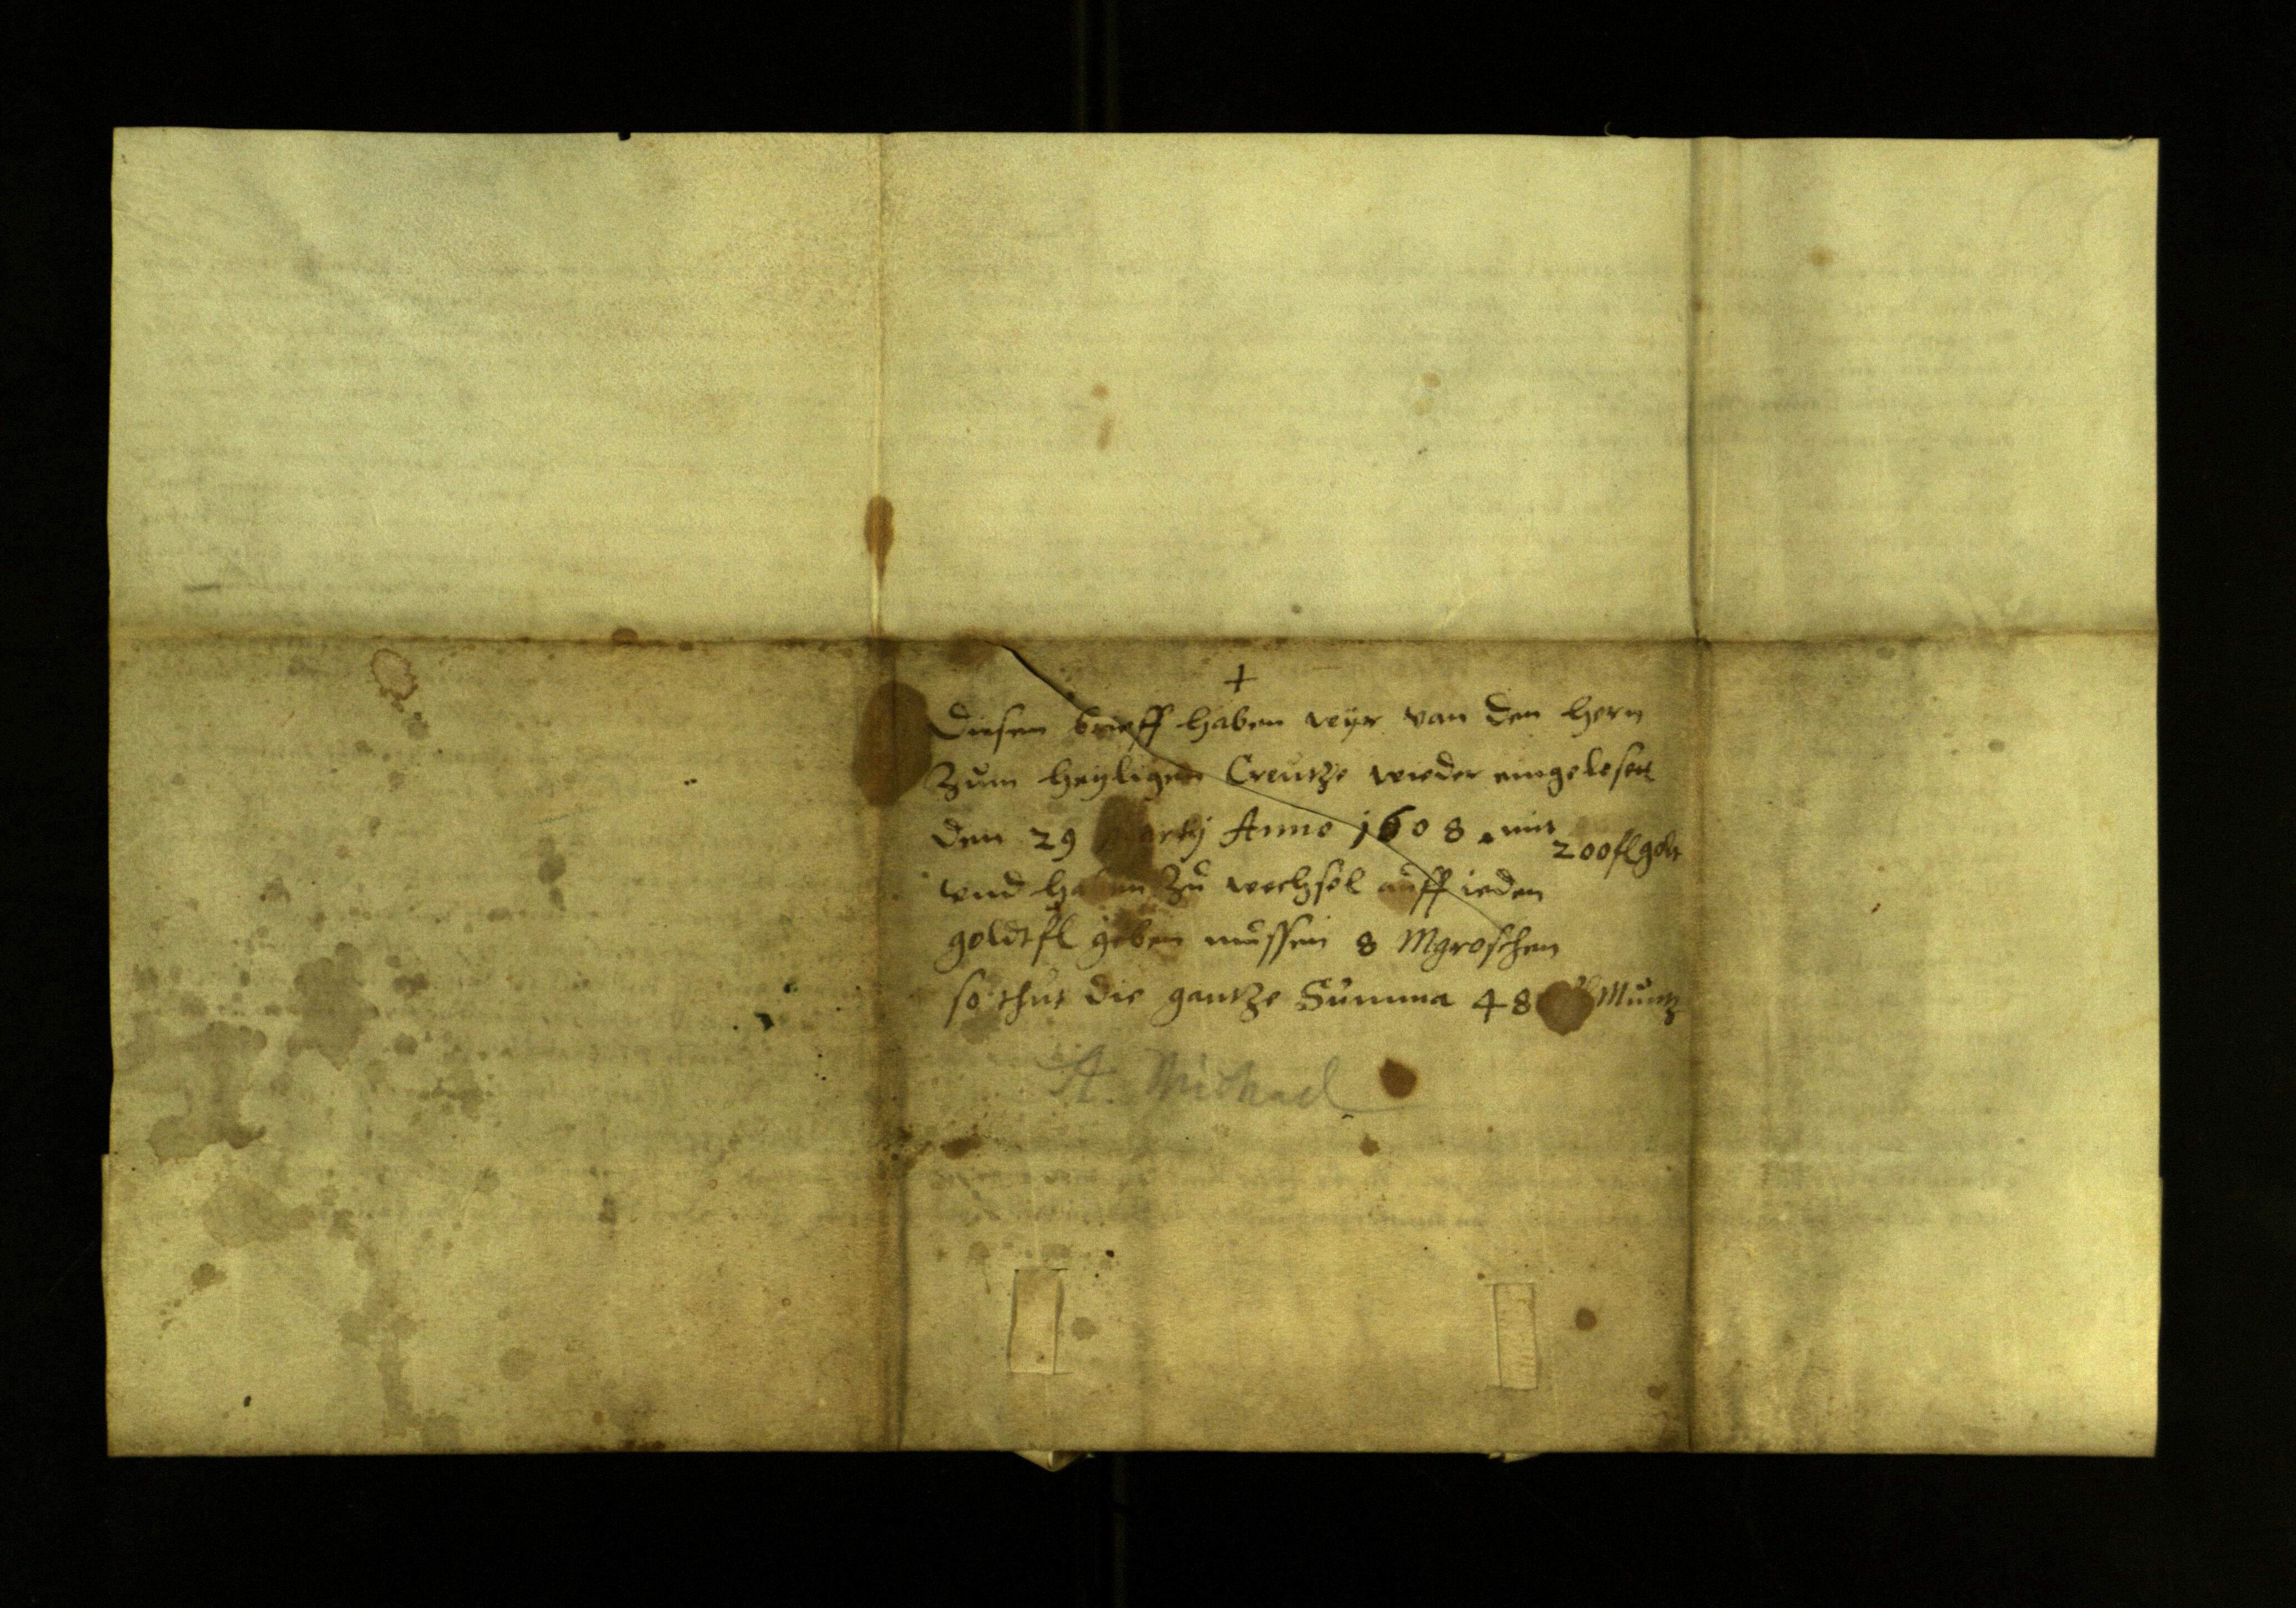 +
Diesen brieff haben wyr van den hern
Zum heyligen Creutze wieder eingeloset
den 29 Martij Anno 1608. mit 200 fl golt
vnd haben Zu wechsel auff ieden
goldtfl geben mussen 8 Mgroschen
so thut die gantze Summa 48 fl Muntz
St. Michael